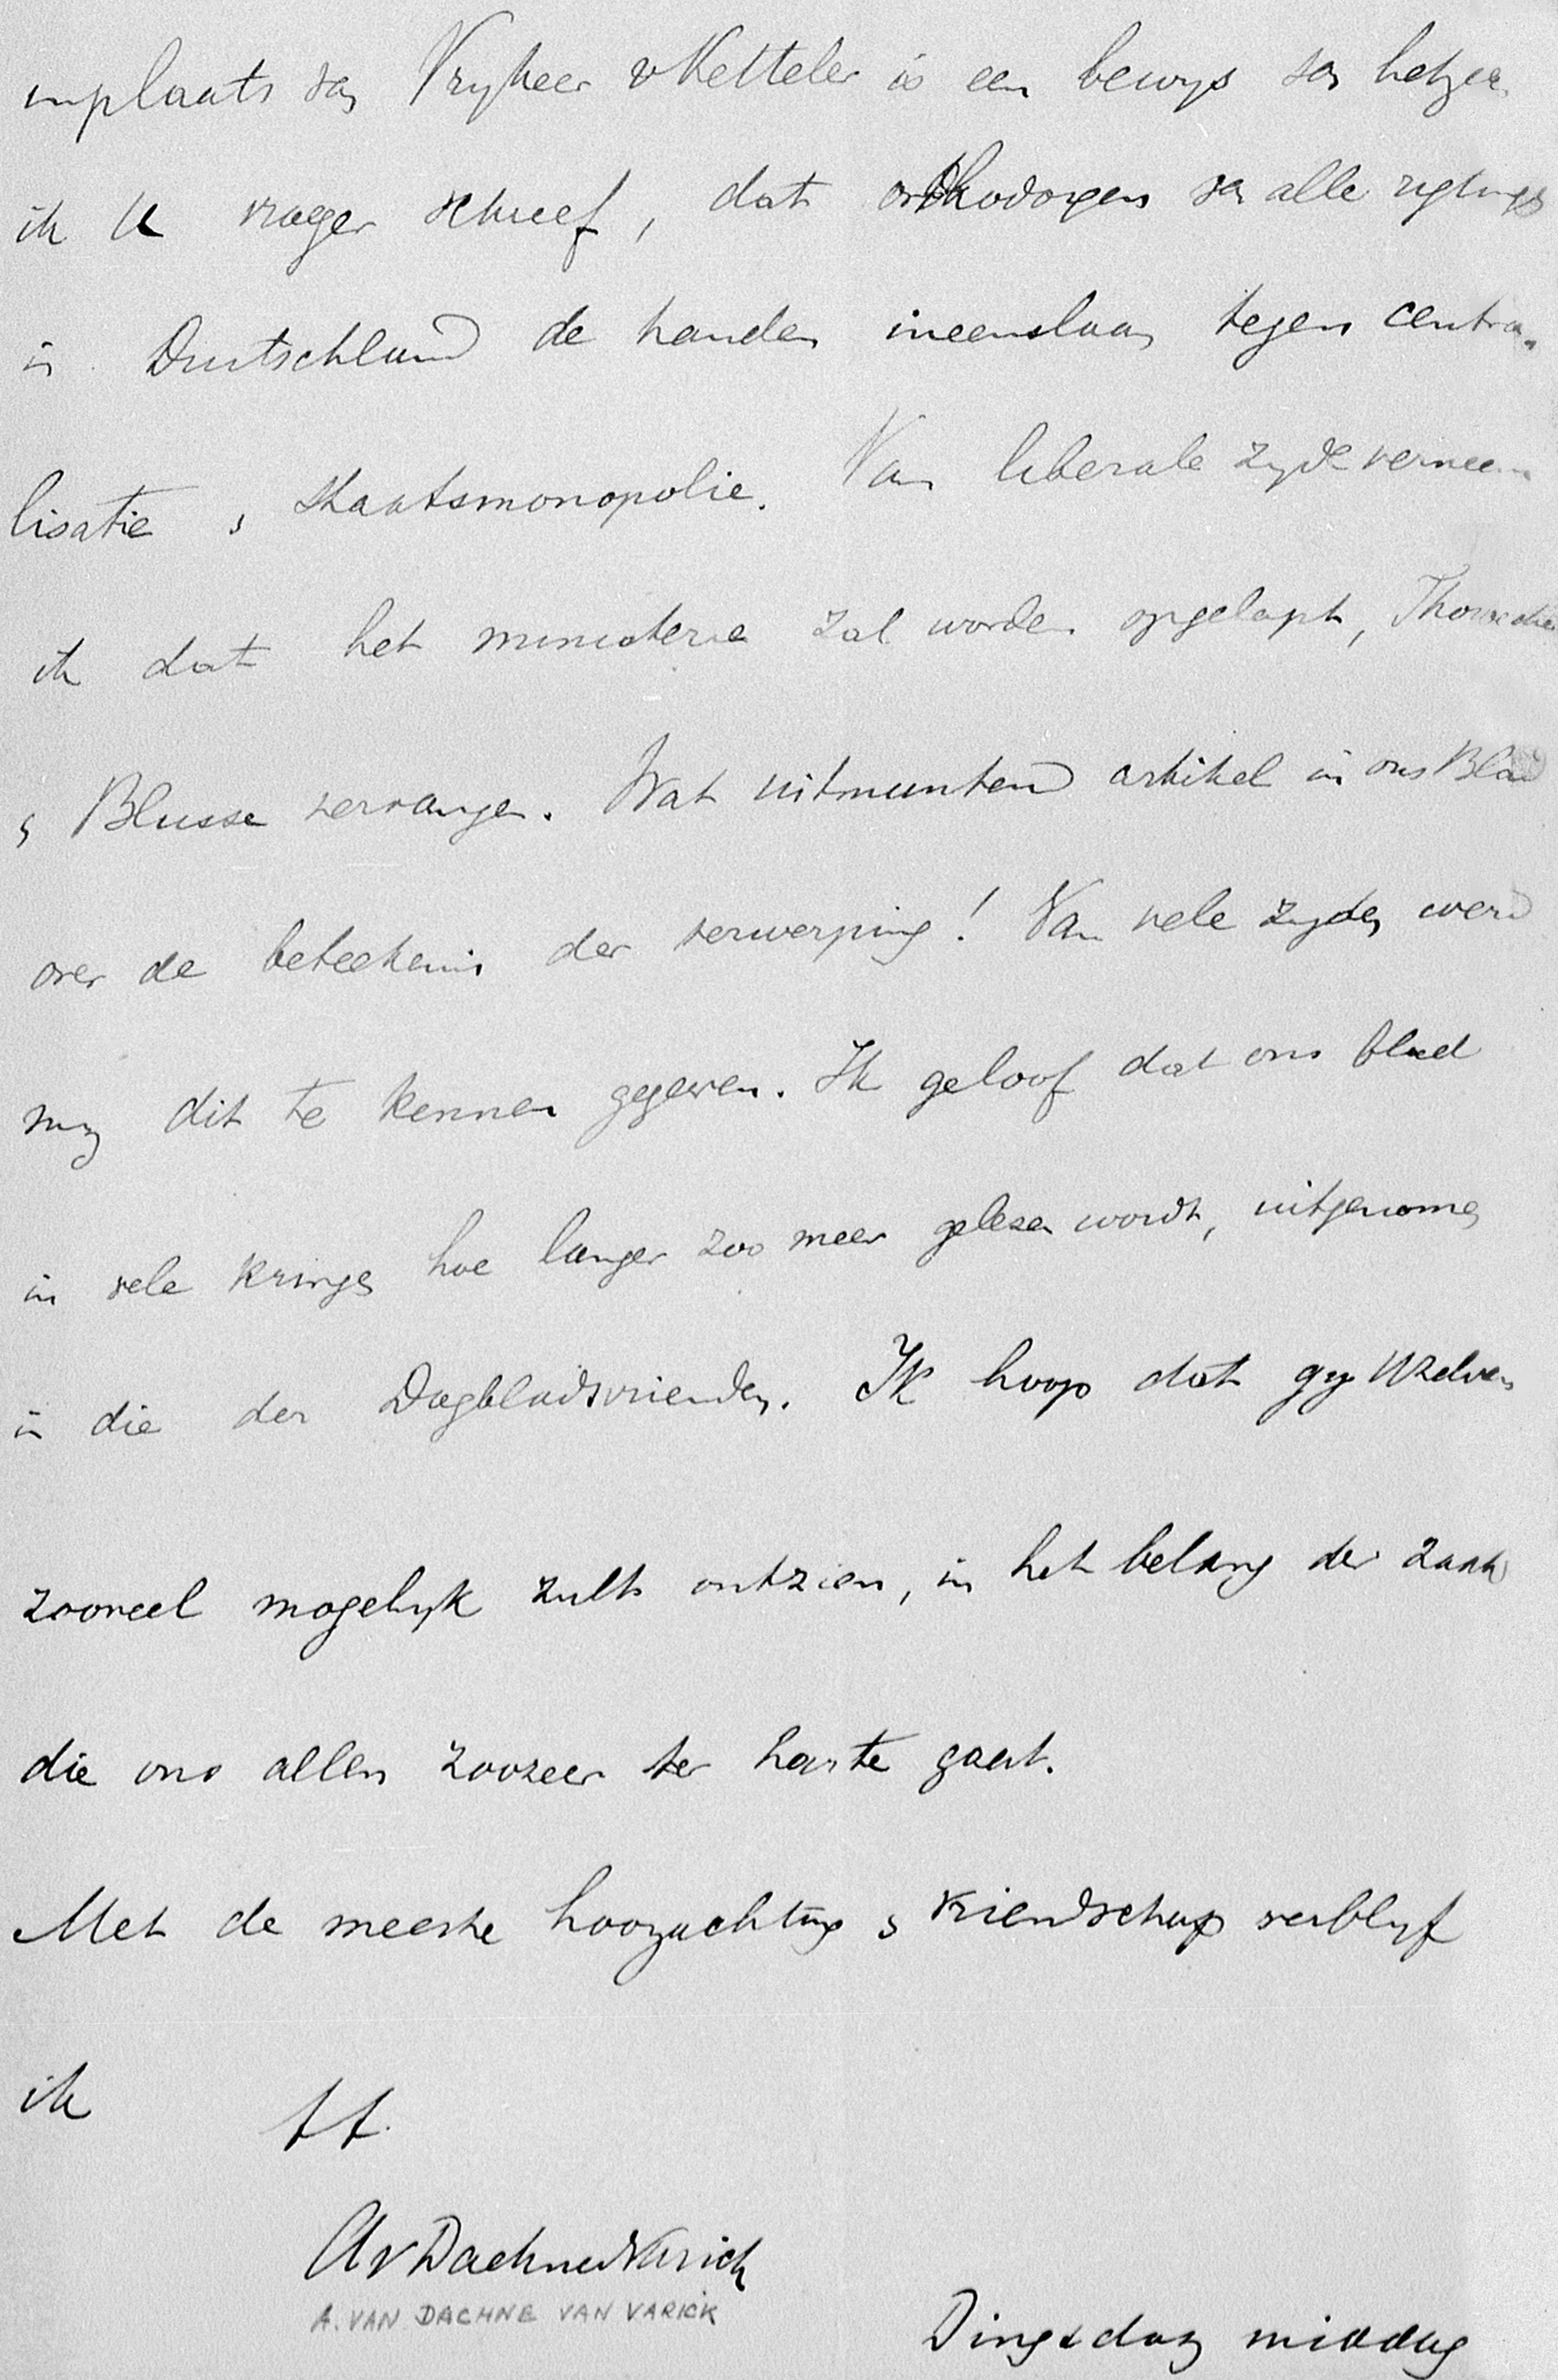 inplaats van Vryheer v Ketteler is een bewys van hetgeen
ik U vroeger schreef, dat orthodoxen van alle rigtings
in Duitschland de handen ineenslaan tegen centra-
lisatie & Staatsmonopolie. Van liberale zyde verneem
ik dat het ministerie zal worden opgelapt, Thorbecke
& Blusse vervangen. Wat uitmuntend artikel in ons Blad
over de beteekenis der verwerping! Van vele zyden werd
my dit te kennen gegeven. Ik geloof dat ons blad
in vele kringen hoe langer zoo meer gelezen wordt, uitgenomen
in die der Dagbladvrienden. Ik hoop dat gy Uzelven
zooveel mogelyk zult ontzien, in het belang der zaak
die ons allen zoozeer ter harte gaat.
Met de meeste hoogachting & vriendschap verblyf
ik tt.
AvDachnevVarick
A. VAN DACHNE VAN VARICK
Dingsdag middag